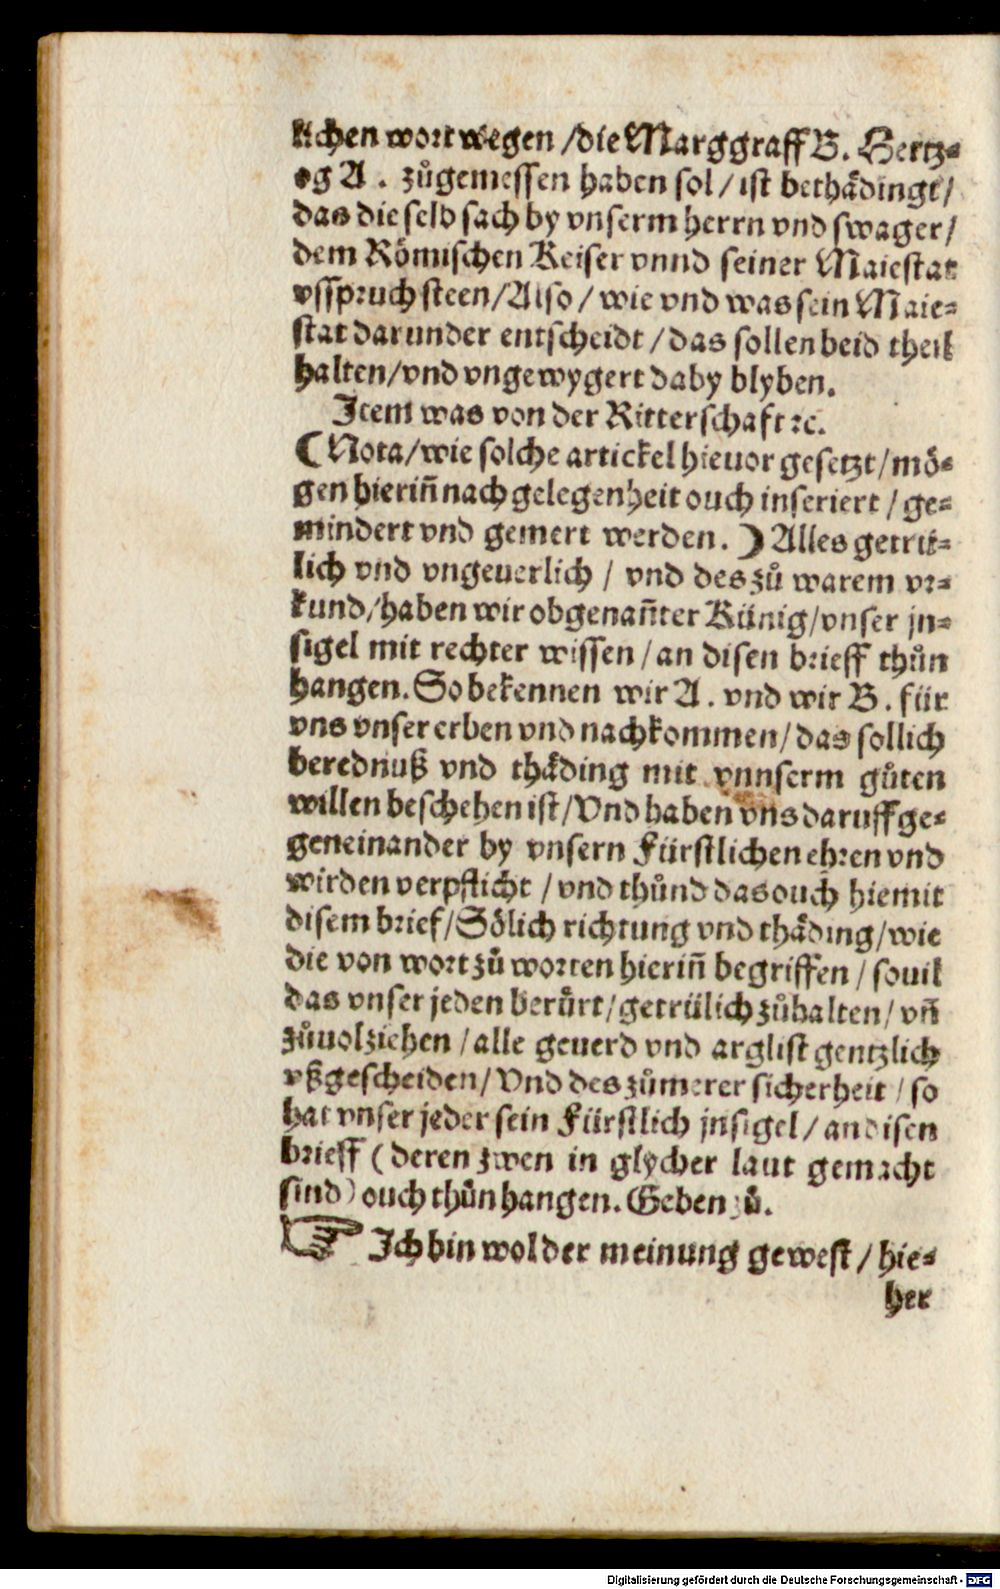 lichen wort wegen /die Marggraff B. Hertz⸗
og A . zůgemessen haben sol / ist bethådingt/
das die selb sach by vnserm herrn vnd swager/
dem Römischen Keiser vnnd seiner Maiestat
vsspruch steen/Also / wie vnd was sein Maie⸗
stat darunder entscheidt / das sollen beid theil
halten/vnd vngewygert daby blyben.
Item was von der Ritterschaft ꝛc.
(Nota/wie solche artickel hieuor gesetzt/mö⸗
gen hieriñ nach gelegenheit ouch inseriert / ge⸗
mindert vnd gemert werden. ) Alles getrü⸗
lich vnd vngeuerlich / vnd des zů warem vr⸗
kund/haben wir obgenañter Künig/vnser jn⸗
sigel mit rechter wissen / an disen brieff thůn
hangen. So bekennen wir A . vnd wir B . für
vns vnser erben vnd nachkommen/ das sollich
berednuß vnd thåding mit vnnserm gůten
willen beschehen ist/Vnd haben vns daruff ge⸗
geneinander by vnsern Fürstlichen ehren vnd
wirden verpflicht / vnd thůnd das ouch hiemit
disem brief/Sölich richtung vnd thåding/wie
die von wort zů worten hieriñ begriffen / souil
das vnser jeden berůrt/getrülich zůhalten/ vñ
zůuolziehen / alle geuerd vnd arglist gentzlich
vßgescheiden/ Vnd des zůmerer sicherheit / so
hat vnser jeder sein Fürstlich jnsigel / an disen
brieff ( deren zwen in glycher laut gemacht
sind) ouch thůn hangen. Geben zů.
☞ Ich bin wol der meinung gewest / hie⸗
her
Digitalisierung gefördert durch die Deutsche Forschungsgemeinschaft - DFG